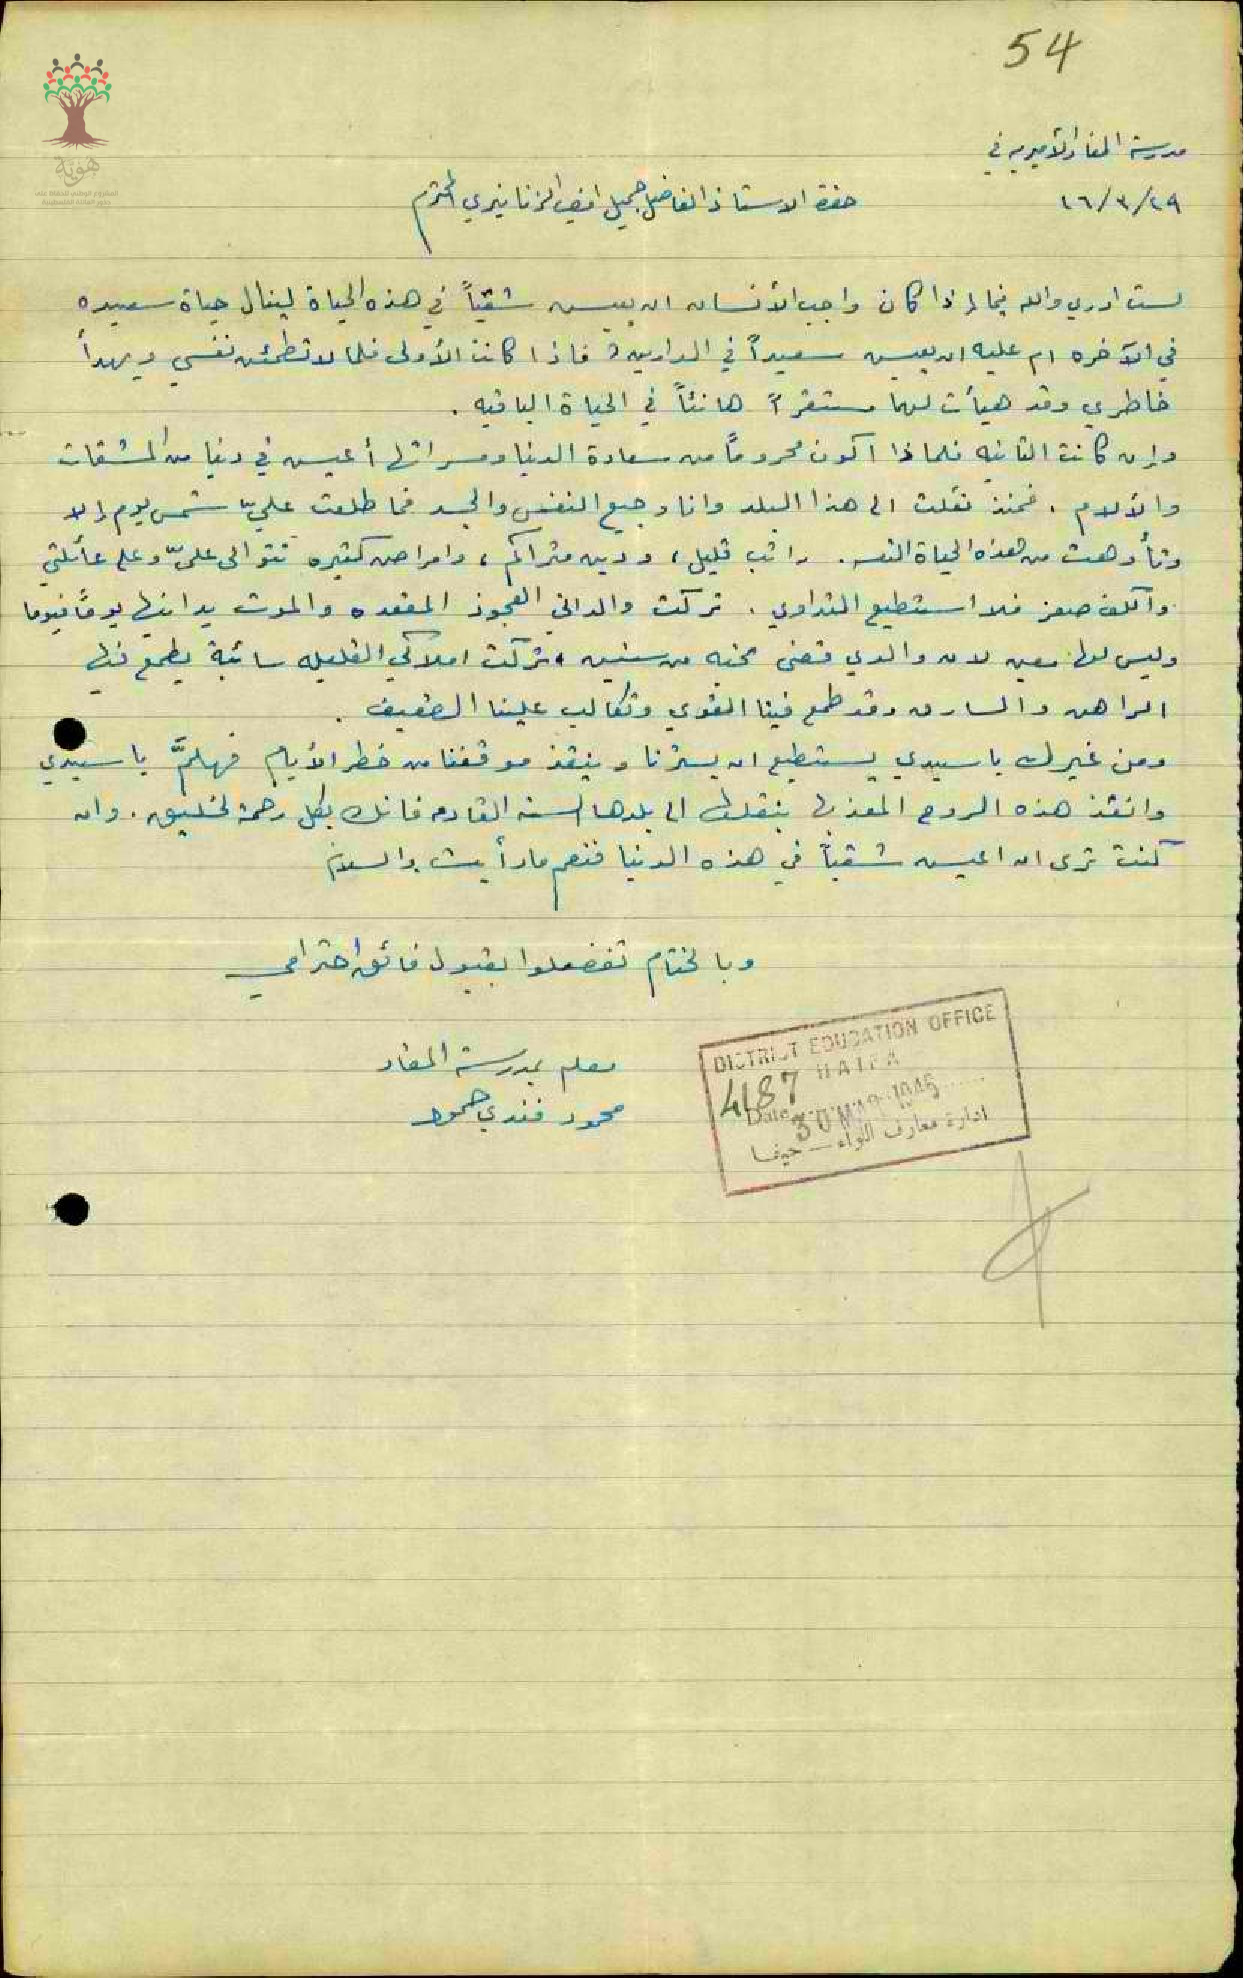 54
هوية
مدرسة المغار الأميرية في
٢٩/٣/٤٦
حضرة الاستاذ الفاضل جميل افندي الزنانيري المحترم
لست ادري والله فيما إذا كان واجب الأنسان ان يعيش شقياً في هذه الحياة لينال حياة سعيده
في الآخره ام عليه ان يعيش سعيداً في الدارين؟ فاذا كانت الأولى فلما لا تطمئن نفسي ويهدأ
خاطري وقد هيأت لهما مستقراً هانئاً في الحياة الباقيه .
وإن كانت الثانيه فلماذا اكون محروماً من سعادة الدنيا ومسراتها أعيش في دنيا من المشقات
والآلام . فمنذ نقلت الى هذا البلد وانا وجيع النفس والجسد فما طلعت عليّ شمس يوم إلا
وتأوهت من هذه الحياة التعسه . راتب قليل ، ودين متراكم ، وامراض كثيره تتوالى عليّ وعلى عائلتي
واكلف صعز فلا استطيع التداوي . تركت والدتي العجوز المقعده والموت يدانيها يوماً فيوما
وليس لها معين لان والدي قضى نحبه من سنين ، تركت املاكي القليله سائبة يطمع فيها
الراهن والسارق وقد طمع فينا القوي وتكالب علينا الضعيف .
ومن غيرك يا سيدي يستطيع ان يسترنا وينقذ موقفنا من خطر الأيام فهلمَّ يا سيدي
وانقذ هذه الروح المعذبة بنقلها الى بلدها السنه القادمه فانك بكل رحمة لخليق . وان
كنت ترى ان اعيش شقياً في هذه الدنيا فنعم ما رأيت والسلام
وبالختام تفضلوا بقبول فائق احترامي
معلم بمدرسة المغار
محمود فندي حمود
DISTRICT EDUCATION OFFICE
HAIFA
4187
Date 30 MAR 1946
ادارة معارف اللواء – حيفا